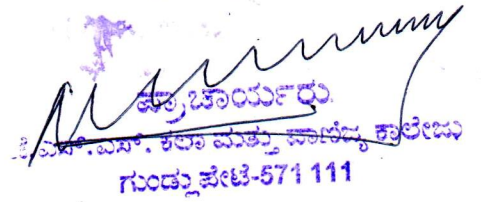 ಪ್ರಾಚಾರ್ಯರು
ಎಸ್. ಕಲಾ ಮತ್ತು ವಾಣಿಜ್ಯ ಕಾಲೇಜು
ಗುಂಡ್ಲುಪೇಟೆ-571 111